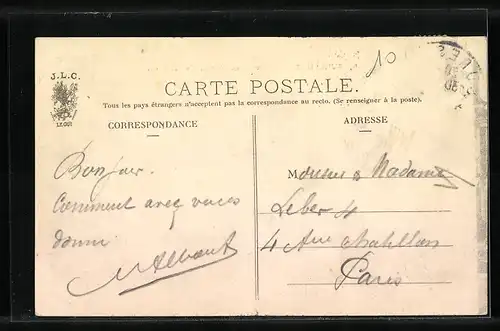 10
J.L.C.
CARTE POSTALE.
Tous les pays étrangers n'acceptent pas la correspondance au recto. (Se renseigner à la poste).
CORRESPONDANCE
ADRESSE
Bonjour.
Comment avez vous
Monsieur & Madame
Leber 4
4 Rue Chatillon
Paris